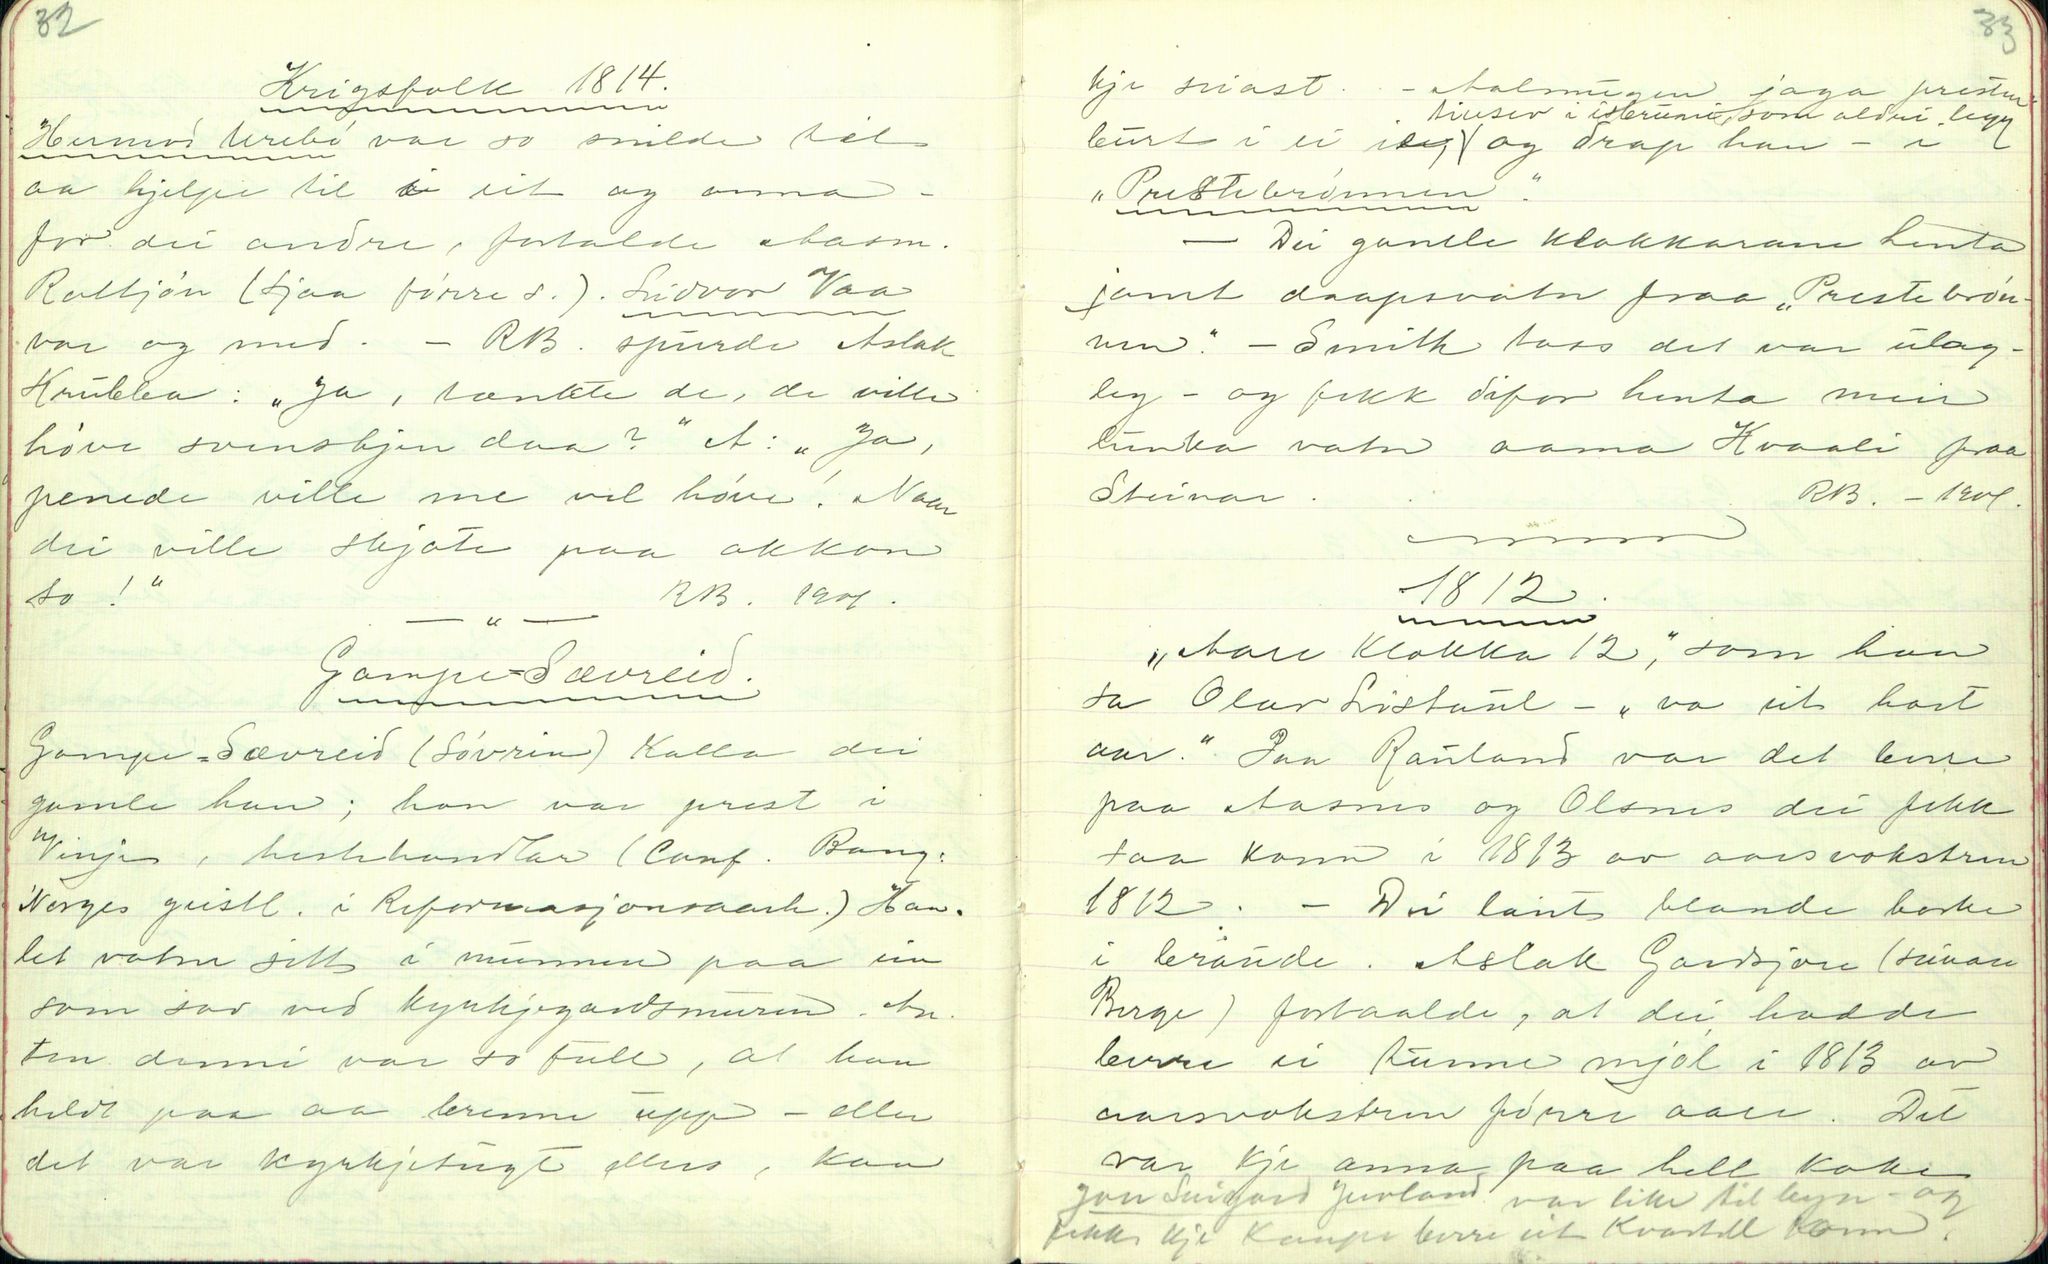 32
Krigsfolk 1814.
Hermod Urebö var so snilde til
aa hjelpe til eit og anna -
for dei andre, fortalde Aasm.
Roltjón (sjaa fórre s.). Sidvor Vaa
var og med. - RB. spurde Aslak
Krubba: „Ja, tenkte de, de ville
höve svenskjen daa?" A: „Ja,
penede ville me vel höve! Naar
dei ville skjote paa okkon
so!" RB. 1901.
— „ —
Gampe-Sævreid.
Gampe-Sævreid (Sövrin) kalla dei
gamle han; han var prest i
Vinje, hestehandlar (Conf. Bang:
Norges geistl. i Reformasjonsaarh.) Han
let vatne sitt i munnen paa ein
som sov ved kyrkjegardsmuren. An-
ten denni var so full, at han
heldt paa aa brenne upp - eller
det var kyrkjetugt ellers, kan
33
kje sviast. - Aalmugen jaga presten
burt i ei og drap han - i
tjuser i isbruni, som aldri legg
„Prestebrönnen".
— Dei gamle klokkarane henta
jamt daapsvatn fraa „Prestebrön-
nen." - Smith tass det var ulag-
leg - og fekk difor henta mein
lunka vatn aama Kvaali fraa
Steinar. RB. - 1901.
1812.
„Aare klokka 12," som han
sa Olav Listaul - „va eit hart
aar." Paa Rauland var det berre
paa Aasnes og Olsnes dei fekk
saa konn i 1813 av aarsvokstren
1812. - Dei laut blande borke
i bröude. Aslak Gardsjore (
Berge) fortaalde, at dei hadde
berre ei tunne mjöl i 1813 av
aarsvokstren fórre aare. Det
var kje anna paa hell koke
Jon Svigard Jurland var like til byn - og
fekk kje kaupe berre eit kvartell konn.